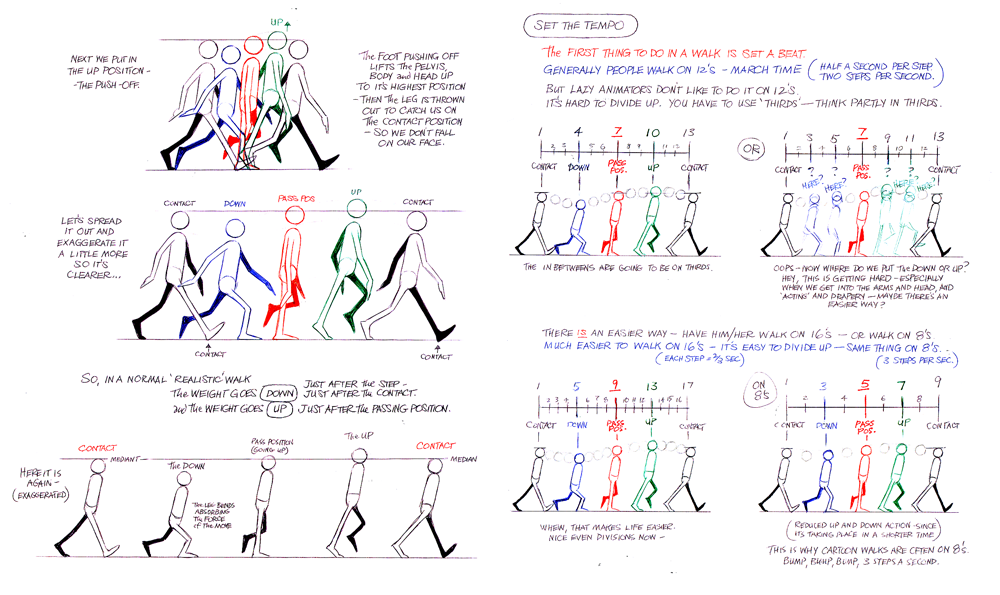 UP
NEXT WE PUT IN
THE UP POSITION -
- THE PUSH-OFF.
The FOOT PUSHING OFF
LIFTS The PELVIS,
BODY and HEAD UP
TO IT'S HIGHEST POSITION
- THEN The LEG IS THROWN
OUT TO CATCH US ON
The CONTACT POSITION
- SO WE DON'T FALL
ON OUR FACE.
LET'S SPREAD
IT OUT AND
EXAGGERATE IT
A LITTLE MORE
SO IT'S
CLEARER...
CONTACT
DOWN
PASS POS
UP
CONTACT
CONTACT
CONTACT
SO, IN A NORMAL 'REALISTIC' WALK
THE WEIGHT GOES DOWN JUST AFTER the STEP -
JUST AFTER the CONTACT.
and the WEIGHT GOES UP JUST AFTER the PASSING POSITION.
HERE IT IS
AGAIN -
(EXAGGERATED)
CONTACT
MEDIAN
The DOWN
The LEG BENDS
ABSORBING
The FORCE
of The MOVE
PASS POSITION
(GOING UP)
The UP
CONTACT
MEDIAN
SET THE TEMPO
The FIRST THING TO DO IN A WALK IS SET A BEAT.
GENERALLY PEOPLE WALK ON 12'S - MARCH TIME (HALF A SECOND PER STEP.
TWO STEPS PER SECOND.)
BUT LAZY ANIMATORS DON'T LIKE TO DO IT ON 12'S.
IT'S HARD TO DIVIDE UP. YOU HAVE TO USE 'THIRDS' — THINK PARTLY IN THIRDS.
1 4 7 10 13
2 3 5 6 8 9 11 12
CONTACT DOWN PASS POS. UP CONTACT
THE INBETWEENS ARE GOING TO BE ON THIRDS.
OR
1 3 5 7 9 11 13
2 4 6 8 10 12
CONTACT ? ? PASS POS. ? ? CONTACT
HERE? HERE? HERE? HERE?
OOPS - NOW WHERE DO WE PUT The DOWN OR UP?
HEY, THIS IS GETTING HARD - ESPECIALLY
WHEN WE GET INTO THE ARMS AND HEAD, AND
'ACTING' AND DRAPERY - MAYBE THERE'S AN
EASIER WAY?
THERE IS AN EASIER WAY - HAVE HIM/HER WALK ON 16'S - OR WALK ON 8'S.
MUCH EASIER TO WALK ON 16'S - IT'S EASY TO DIVIDE UP — SAME THING ON 8'S.
(EACH STEP = 2/3 SEC) (3 STEPS PER SEC.)
1 5 9 13 17
2 3 4 6 7 8 10 11 12 14 15 16
CONTACT DOWN PASS POS. UP CONTACT
WHEW, THAT MAKES LIFE EASIER.
NICE EVEN DIVISIONS NOW -
ON 8'S
1 3 5 7 9
2 4 6 8
CONTACT DOWN PASS POS. UP CONTACT
(REDUCED UP AND DOWN ACTION - SINCE
ITS TAKING PLACE IN A SHORTER TIME)
THIS IS WHY CARTOON WALKS ARE OFTEN ON 8'S.
BUMP, BUMP, BUMP, 3 STEPS A SECOND.